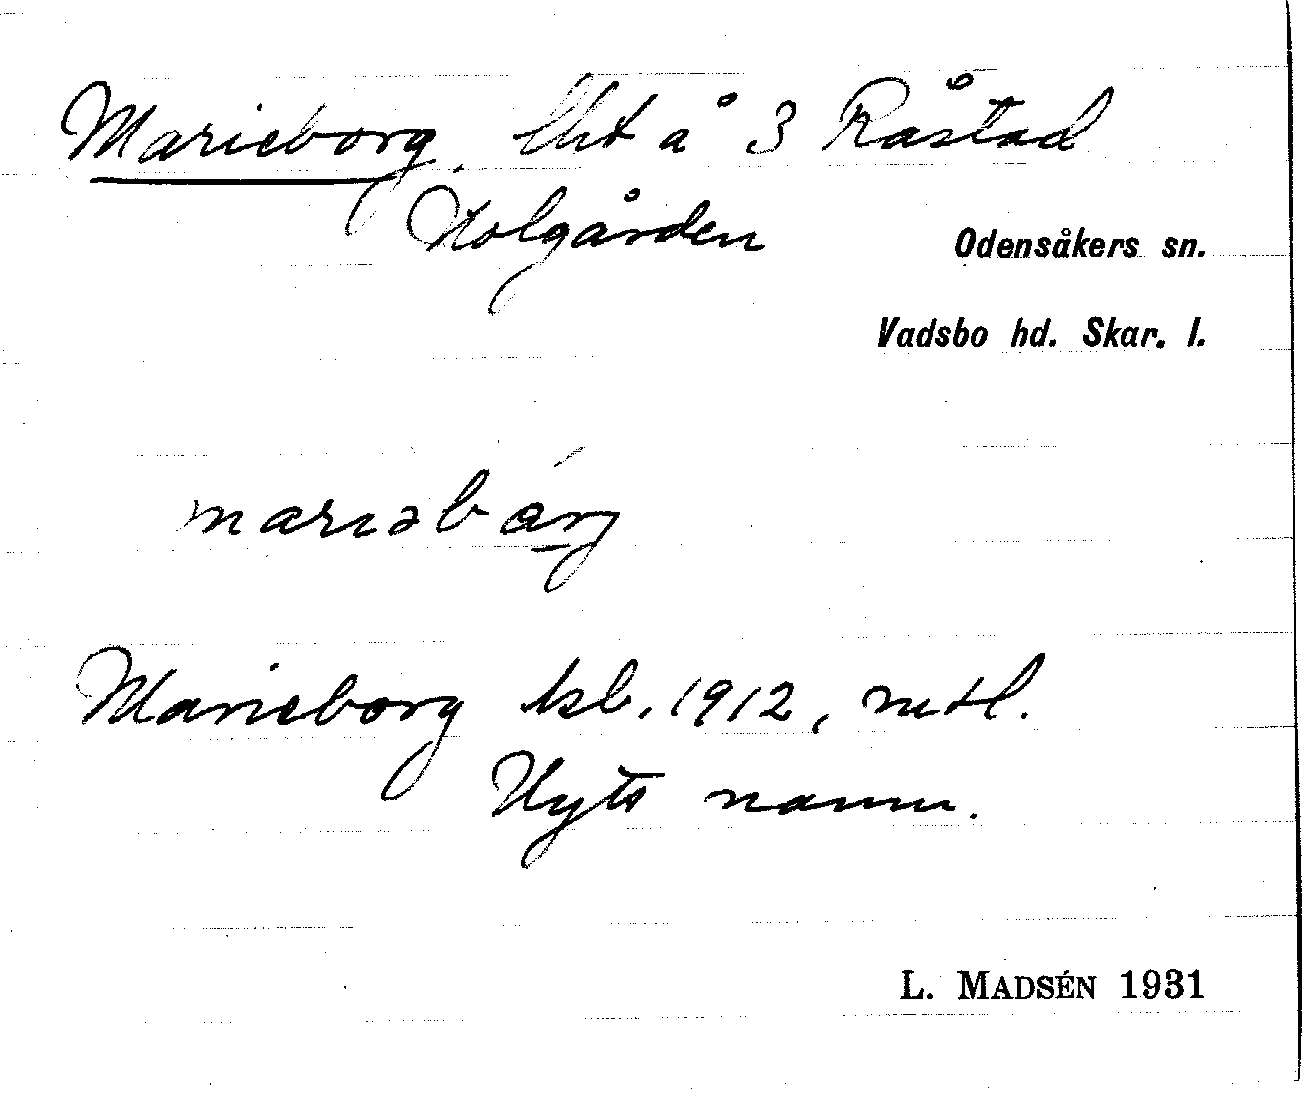 Marieborg. lht å 3 Råstad
Holgården
Odensåkers sn.
Vadsbo hd. Skar. l.
mariəbárj
Marieborg kb. 1912, mtl.
Nytt namn.
L. MADSÉN 1931